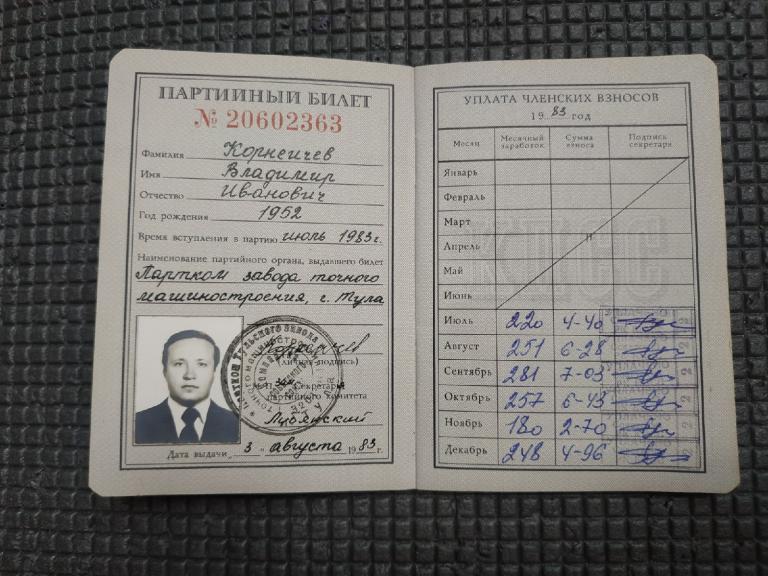 ПАРТИЙНЫЙ БИЛЕТ
№ 20602363
Фамилия Корнеичев
Имя Владимир
Отчество Иванович
Год рождения 1952
Время вступления в партию июль 1983 г.
Наименование партийного органа, выдавшего билет
Партком завода точного
машиностроения, г. Тула
(личная подпись)
Секретарь
партийного комитета
Дата выдачи „3" августа 1983 г.
УПЛАТА ЧЛЕНСКИХ ВЗНОСОВ
1983 год
Месяц Месячный заработок Сумма взноса Подпись секретаря
Январь
Февраль
Март
Апрель
Май
Июнь
Июль 220 4-40
Август 251 6-28
Сентябрь 281 7-03
Октябрь 257 6-43
Ноябрь 180 2-70
Декабрь 248 4-96
КПСС